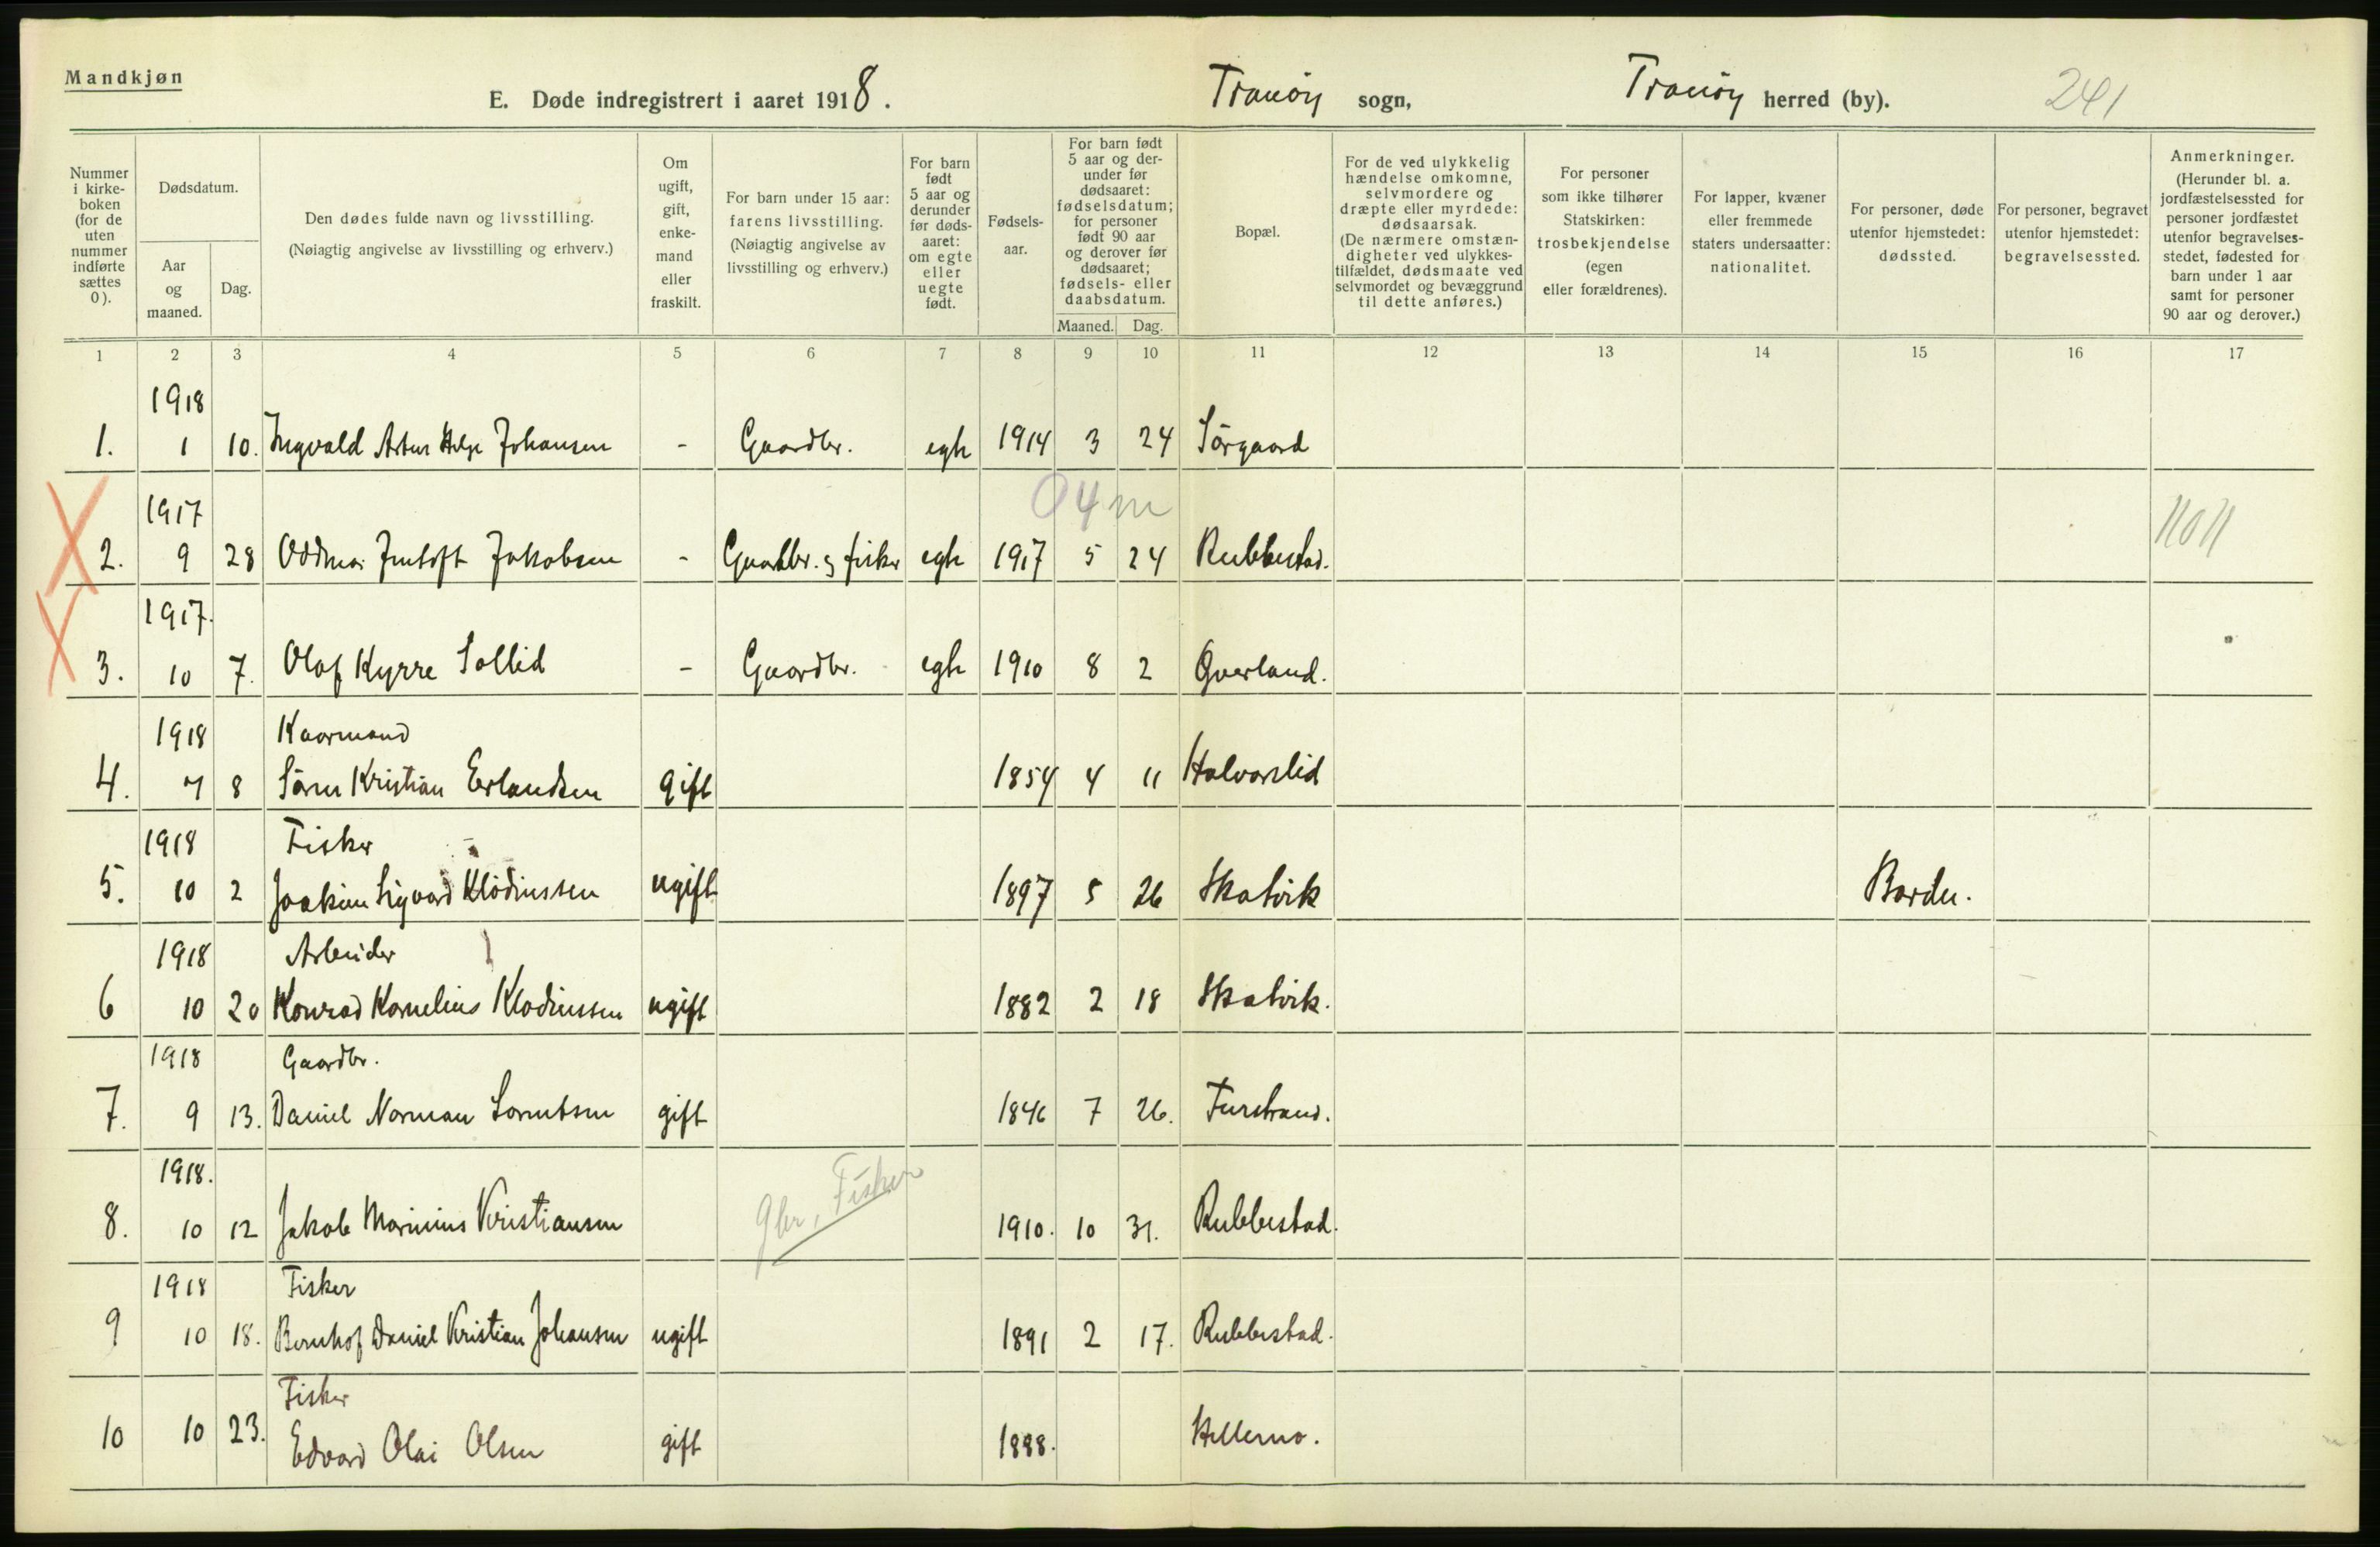 Mandkjøn
E. Døde indregistrert i aaret 1918. Tranöy sogn, Tranöy herred (by). 241
Nummer i kirke-boken (for de uten nummer indførte sættes 0).
Dødsdatum.
Aar og maaned.
Dag.
Den dødes fulde navn og livsstilling. (Nøiagtig angivelse av livsstilling og erhverv.)
Om ugift, gift, enke-mand eller fraskilt.
For barn under 15 aar: farens livsstilling. (Nøiagtig angivelse av livsstilling og erhverv.)
For barn født 5 aar og derunder før døds-aaret: om egte eller uegte født.
Fødsels-aar.
For barn født 5 aar og der-under før dødsaaret: fødselsdatum; for personer født 90 aar og derover før dødsaaret; fødsels- eller daabsdatum.
Maaned. Dag.
Bopæl.
For de ved ulykkelig hændelse omkomne, selvmordere og dræpte eller myrdede: dødsaarsak. (De nærmere omstæn-digheter ved ulykkes-tilfældet, dødsmaate ved selvmordet og bevæggrund til dette anføres.)
For personer som ikke tilhører Statskirken: trosbekjendelse (egen eller forældrenes).
For lapper, kvæner eller fremmede staters undersaatter: nationalitet.
For personer, døde utenfor hjemstedet: dødssted.
For personer, begravet utenfor hjemstedet: begravelsessted.
Anmerkninger. (Herunder bl. a. jordfæstelsessted for personer jordfæstet utenfor begravelses-stedet, fødested for barn under 1 aar samt for personer 90 aar og derover.)
1 2 3 4 5 6 7 8 9 10 11 12 13 14 15 16 17
1918
1. 1 10. Ingvald Artur Helge Johansen - Gaardbr. egte 1914 3 24 Sörgaard
1917 04 m
2. 9 28 Oddmar Jakobsen - Gaardbr. og fisker egte 1917 5 24 Rubbestad.
1917.
3. 10 7. Olaf Kyrre Sollid - Gaardbr. egte 1910 8 2 Overland.
1918 Kaarmand
4. 7 8 Sören Kristian Erlandsen gift 1854 4 11 Halvarslid
1918 Fisker
5. 10 2 Joakim Sigvard Klodiussen ugift 1897 5 26 Skatvik Bardu.
1918 Arbeider
6 10 20 Konrad Kornelius Klodiussen ugift 1882 2 18 Skatvik.
1918 Gaardbr.
7. 9 13. Daniel Norman Lorentsen gift 1846 7 26. Furstrand.
1918. gbr, Fisker
8. 10 12 Jakob Marinius Kristiansen 1910. 10 31. Rubbestad.
1918 Fisker
9 10 18. Bernhof Daniel Kristian Johansen ugift 1891 2 17. Rubbestad.
Fisker
10 10 23. Edvard Olai Olsen gift 1888. Hellemo.